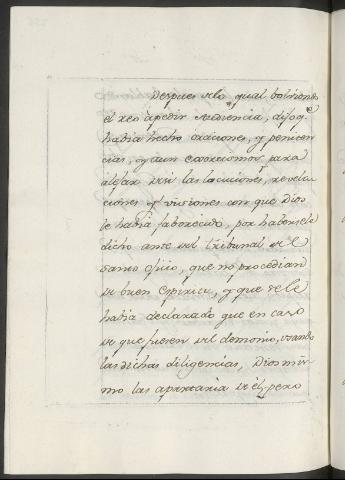 Despues de lo qual bolviendo
el reo à pedir Audiencia, dijo q.e
habia hecho oraciones, y peniten
cias, y aun exorcismos para
alejar de si las locuciones, revela
ciones y visiones con que Dios
le habia faborecido, por habersele
dicho ante del tribunal de el
santo oficio, que no procedian
de buen espiritu, y que se le
habia declarado que en caso
de que fuesen del demonio, usando
las dichas diligencias, Dios mis
mo las apartaria de èl, pero